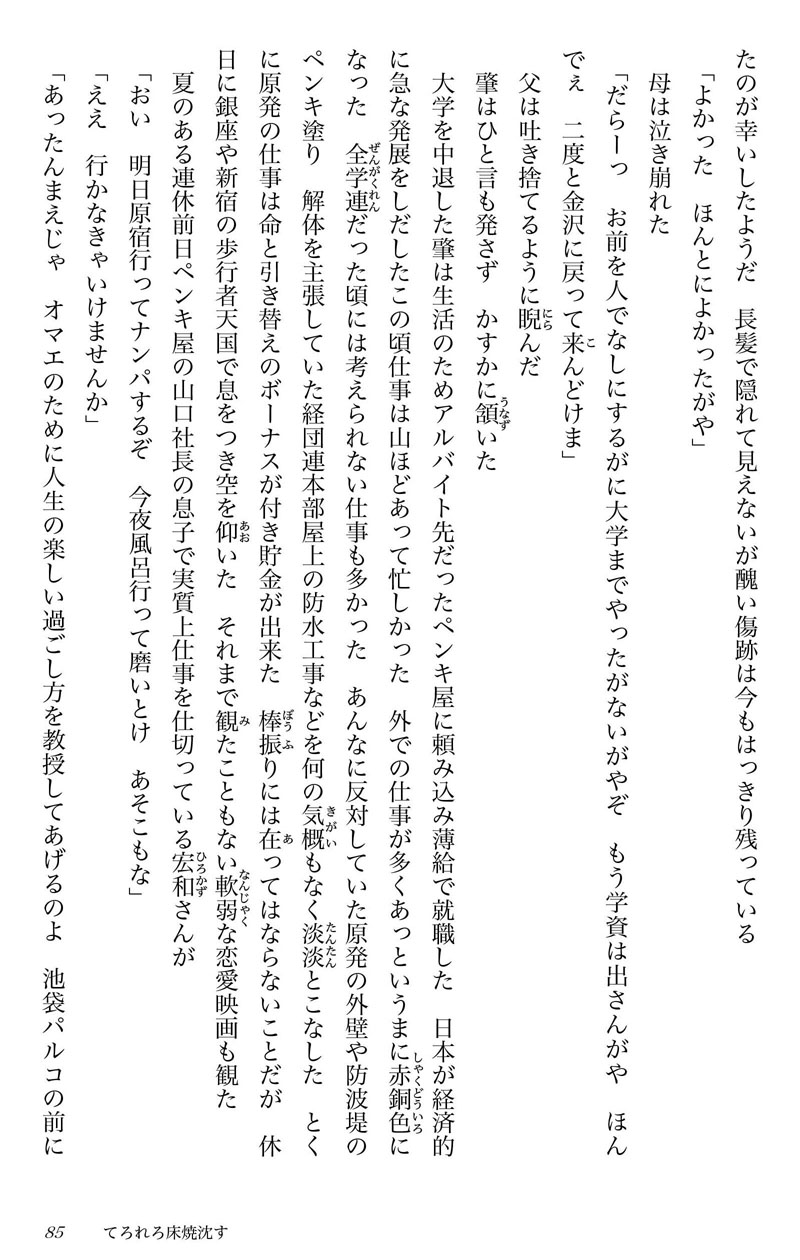 たのが幸いしたようだ　長髪で隠れて見えないが醜い傷跡は今もはっきり残っている
「よかった　ほんとによかったがや」
母は泣き崩れた
「だらーっ　お前を人でなしにするがに大学までやったがないがやぞ　もう学資は出さんがや　ほん
でぇ　二度と金沢に戻って来んどけま」
父は吐き捨てるように睨んだ
肇はひと言も発さず　かすかに頷いた
大学を中退した肇は生活のためアルバイト先だったペンキ屋に頼み込み薄給で就職した　日本が経済的
に急な発展をしだしたこの頃仕事は山ほどあって忙しかった　外での仕事が多くあっというまに赤銅色に
なった　全学連だった頃には考えられない仕事も多かった　あんなに反対していた原発の外壁や防波堤の
ペンキ塗り　解体を主張していた経団連本部屋上の防水工事などを何の気概もなく淡淡とこなした　とく
に原発の仕事は命と引き替えのボーナスが付き貯金が出来た　棒振りには在ってはならないことだが　休
日に銀座や新宿の歩行者天国で息をつき空を仰いた　それまで観たこともない軟弱な恋愛映画も観た
夏のある連休前日ペンキ屋の山口社長の息子で実質上仕事を仕切っている宏和さんが
「おい　明日原宿行ってナンパするぞ　今夜風呂行って磨いとけ　あそこもな」
「ええ　行かなきゃいけませんか」
「あったんまえじゃ　オマエのために人生の楽しい過ごし方を教授してあげるのよ　池袋パルコの前に
85　てろれろ床焼沈す